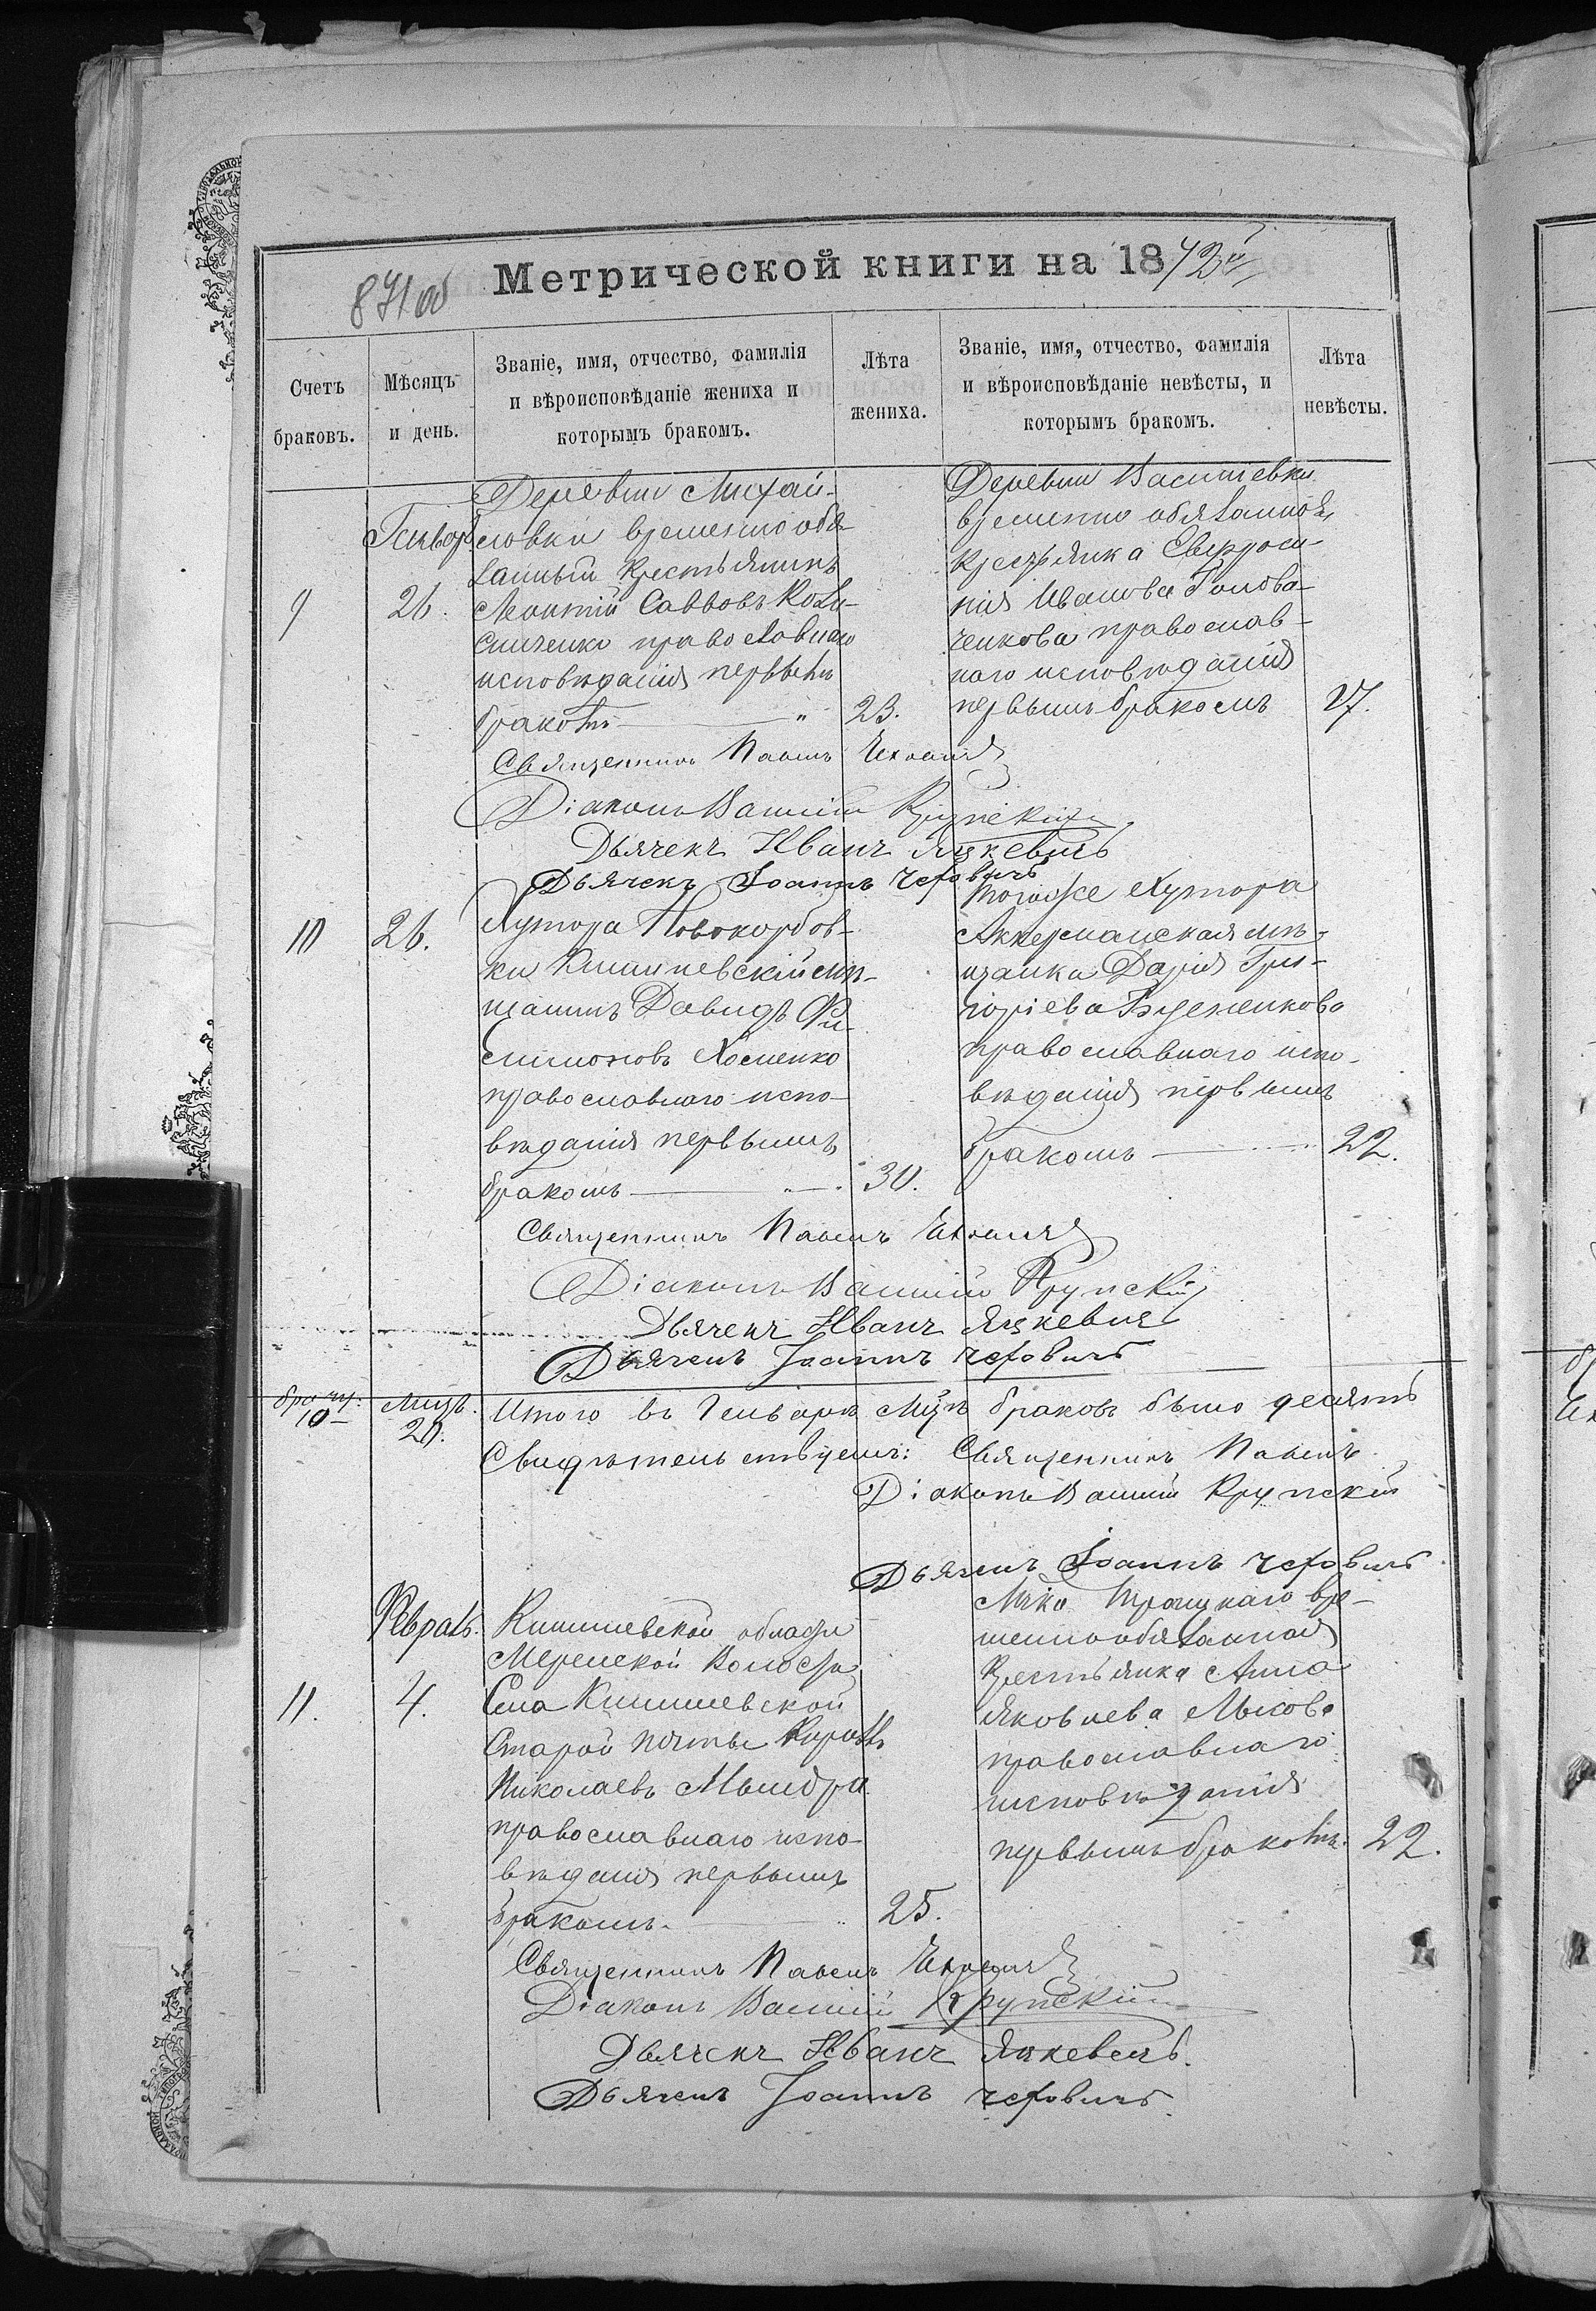 871 об
Метрической книги на 1873й
Счетъ браковъ.
Мѣсяцъ и день.
Званіе, имя, отчество, фамилія
и вѣроисповѣданіе жениха и
которымъ бракомъ.
Лѣта
жениха.
Званіе, имя, отчество, фамилія
и вѣроисповѣданіе невѣсты, и
которымъ бракомъ.
Лѣта
невѣсты.
9
Генваря
26.
Деревни Михай-
ловки временно обя-
занный крестьянинъ
Леонтій Саввовъ
православнаго
исповѣданія первымъ
бракомъ
23.
Деревни Василіевки
временно обязанная
крестьянка Евфроси-
нія Иванова Голова-
ченкова православ-
наго исповѣданія
первымъ бракомъ
17.
Священникъ Павелъ
Діаконъ Василій Крупскій
Дьячекъ Иванъ Яцкевичъ
Дьячекъ Іоаннъ Чеховичъ
10
26.
Хутора
Кишиневскій мѣ-
щанинъ Давидъ Фи-
лимоновъ Хоменко
православнаго испо-
вѣданія первымъ
бракомъ
30.
Тогоже Хутора
Аккерманская мѣ-
щанка Дарія Гри-
горіева
православнаго испо-
вѣданія первымъ
бракомъ
22.
Священникъ Павелъ
Діаконъ Василій Крупскій
Дьячекъ Иванъ Яцкевичъ
Дьячекъ Іоаннъ Чеховичъ
10
20.
Итого въ Генварѣ мцѣ браковъ было десять
Свидѣтельствуемъ: Священникъ Павелъ
Діаконъ Василій Крупскій
Дьячекъ Іоаннъ Чеховичъ
11.
Февраль.
4.
Кишиневской области
Меренской Волости
Села Кишиневской
Старой Почты
Николаевъ Мындра
православнаго испо-
вѣданія первымъ
бракомъ
25.
М-ка Троицкаго вре-
менно обязанная
Крестьянка Анна
Яковлева Лысова
православнаго
исповѣданія
первымъ бракомъ
22.
Священникъ Павелъ
Діаконъ Василій Крупскій
Дьячекъ Иванъ Яцкевичъ.
Дьячекъ Іоаннъ Чеховичъ.